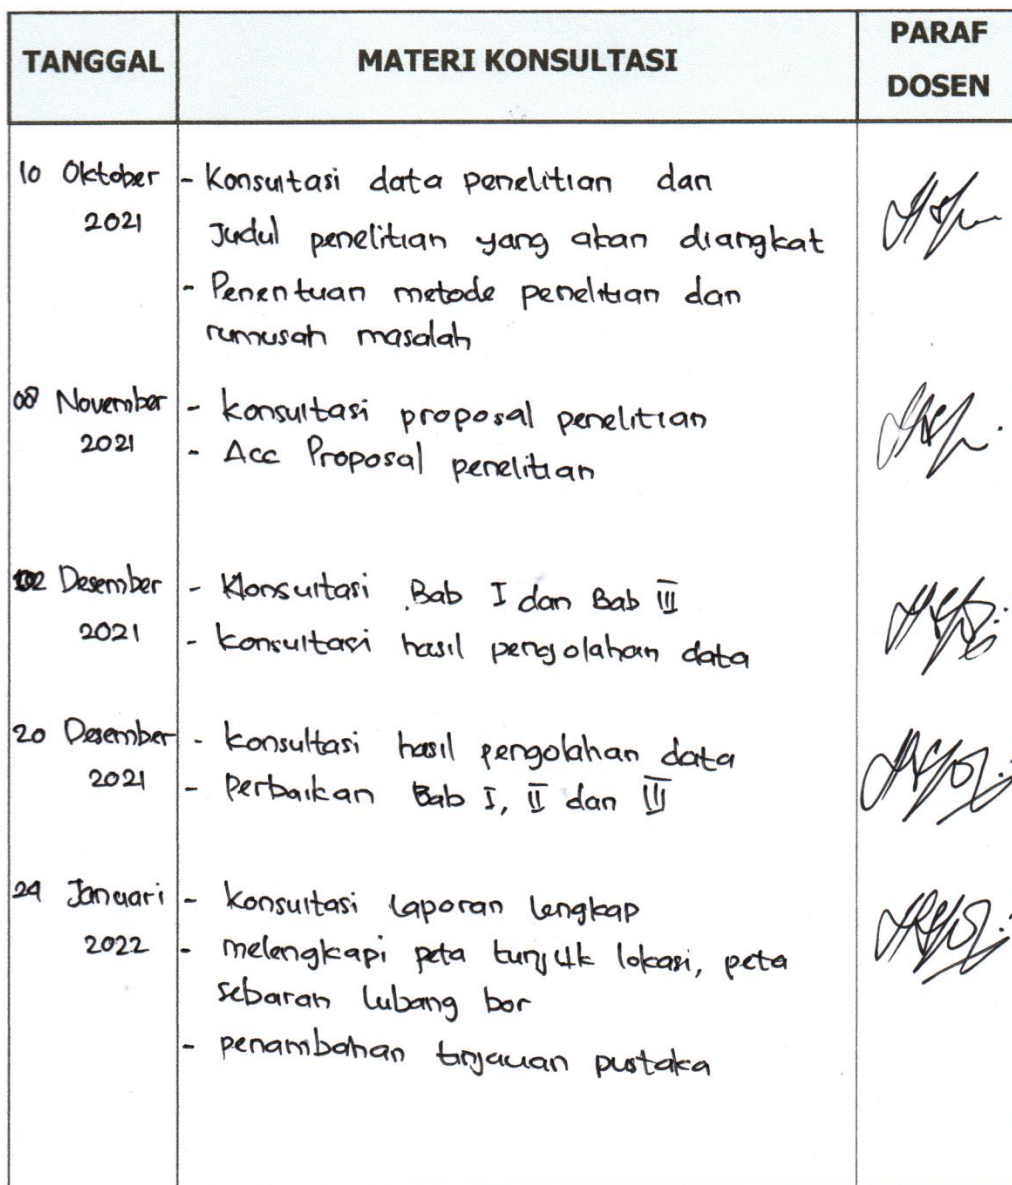 TANGGAL
MATERI KONSULTASI
PARAF
DOSEN
10 Oktober
2021
- Konsultasi data penelitian dan
Judul penelitian yang akan diangkat
- Penentuan metode penelitian dan
rumusan masalah
08 November
2021
- konsultasi proposal penelitian
- Acc Proposal penelitian
02 Desember
2021
- Konsultasi Bab I dan Bab III
- konsultasi hasil pengolahan data
20 Desember
2021
- konsultasi hasil pengolahan data
- Perbaikan Bab I, II dan III
24 Januari
2022
- konsultasi laporan lengkap
- melengkapi peta tunjuk lokasi, peta
sebaran lubang bor
- penambahan tinjauan pustaka